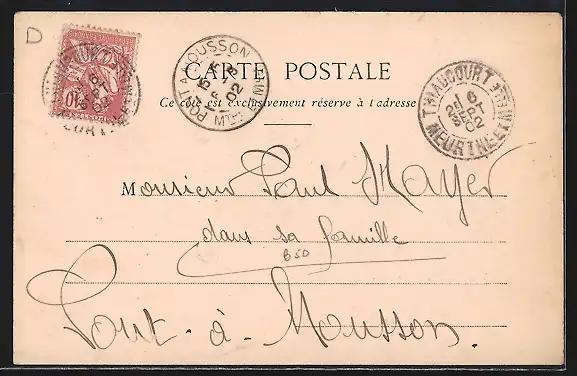 D
CARTE POSTALE
Ce côté est exclusivement réservé à l'adresse
PONT A MOUSSON
02
THIAUCOURT
6
SEPT
02
MEURTHE-ET-M
10
Monsieur Paul Mayer
dans sa famille
650
Pont-à-Mousson.